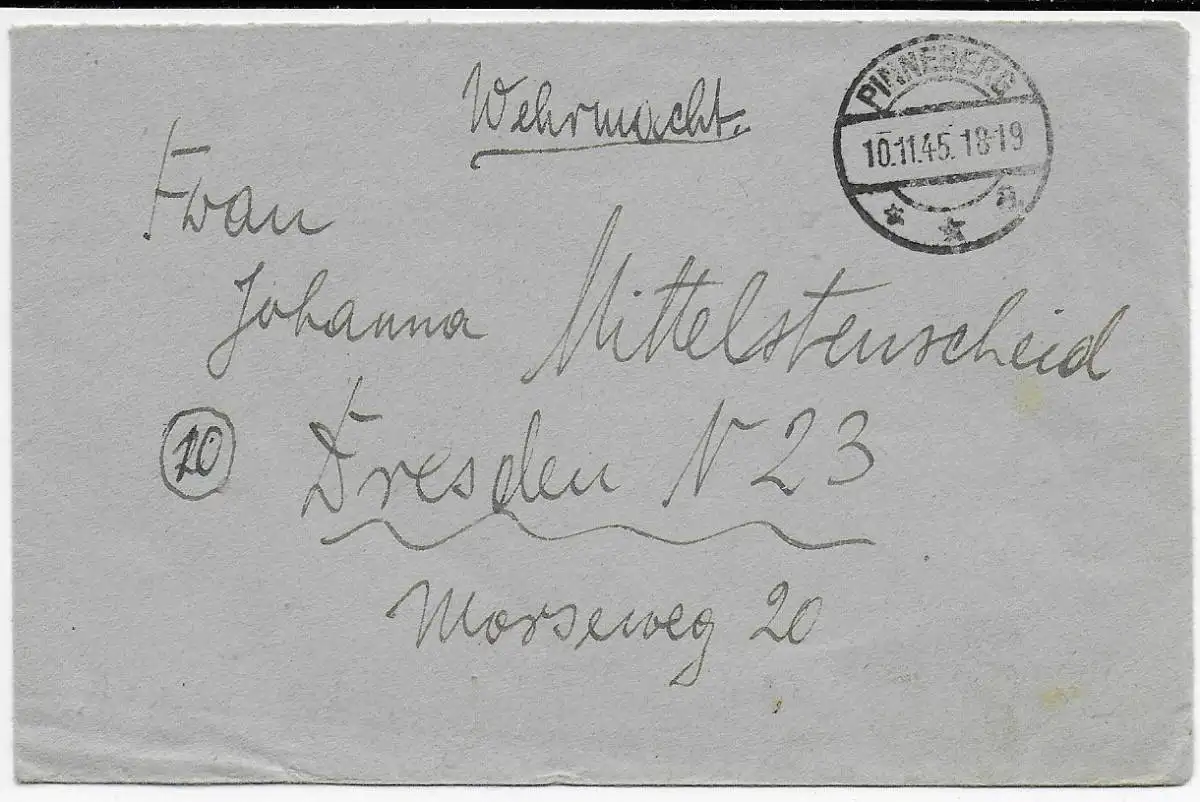 Wehrmacht.
PINNEBERG
10.11.45.18-19
a
Frau
Johanna Mittelstenscheid
10 Dresden N 23
Morseweg 20